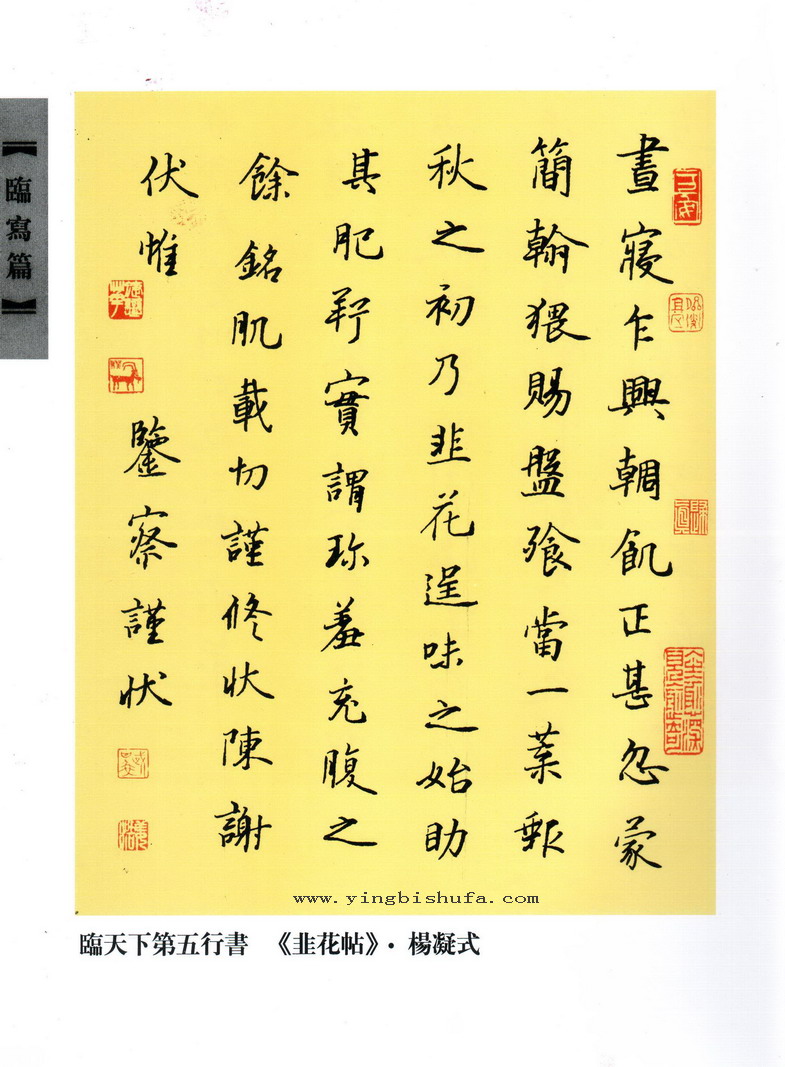 【臨寫篇】
晝寢乍興輖飢正甚忽蒙
簡翰猥賜盤飧當一葉報
秋之初乃韭花逞味之始助
其肥羜實謂珍羞充腹之
餘銘肌載切謹修狀陳謝
伏惟
鑒察謹狀
www.yingbishufa.com
臨天下第五行書 《韭花帖》·楊凝式